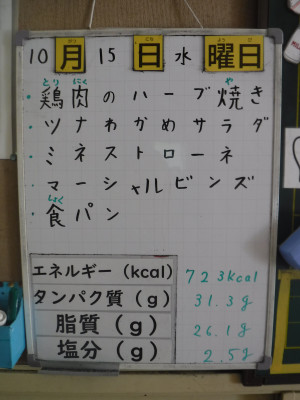 10月15日水曜日
・鶏肉のハーブ焼き
・ツナわかめサラダ
・ミネストローネ
・マーシャルビンズ
・食パン
エネルギー（kcal） 723kcal
タンパク質（g） 31.3g
脂質（g） 26.1g
塩分（g） 2.5g